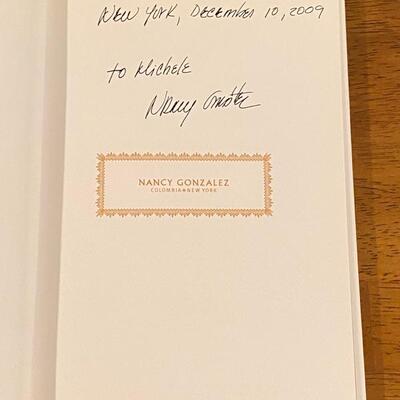 NEW YORK, DECEMBER 10, 2009
to Michele
Nancy Gonzalez
NANCY GONZALEZ
COLOMBIA NEW YORK